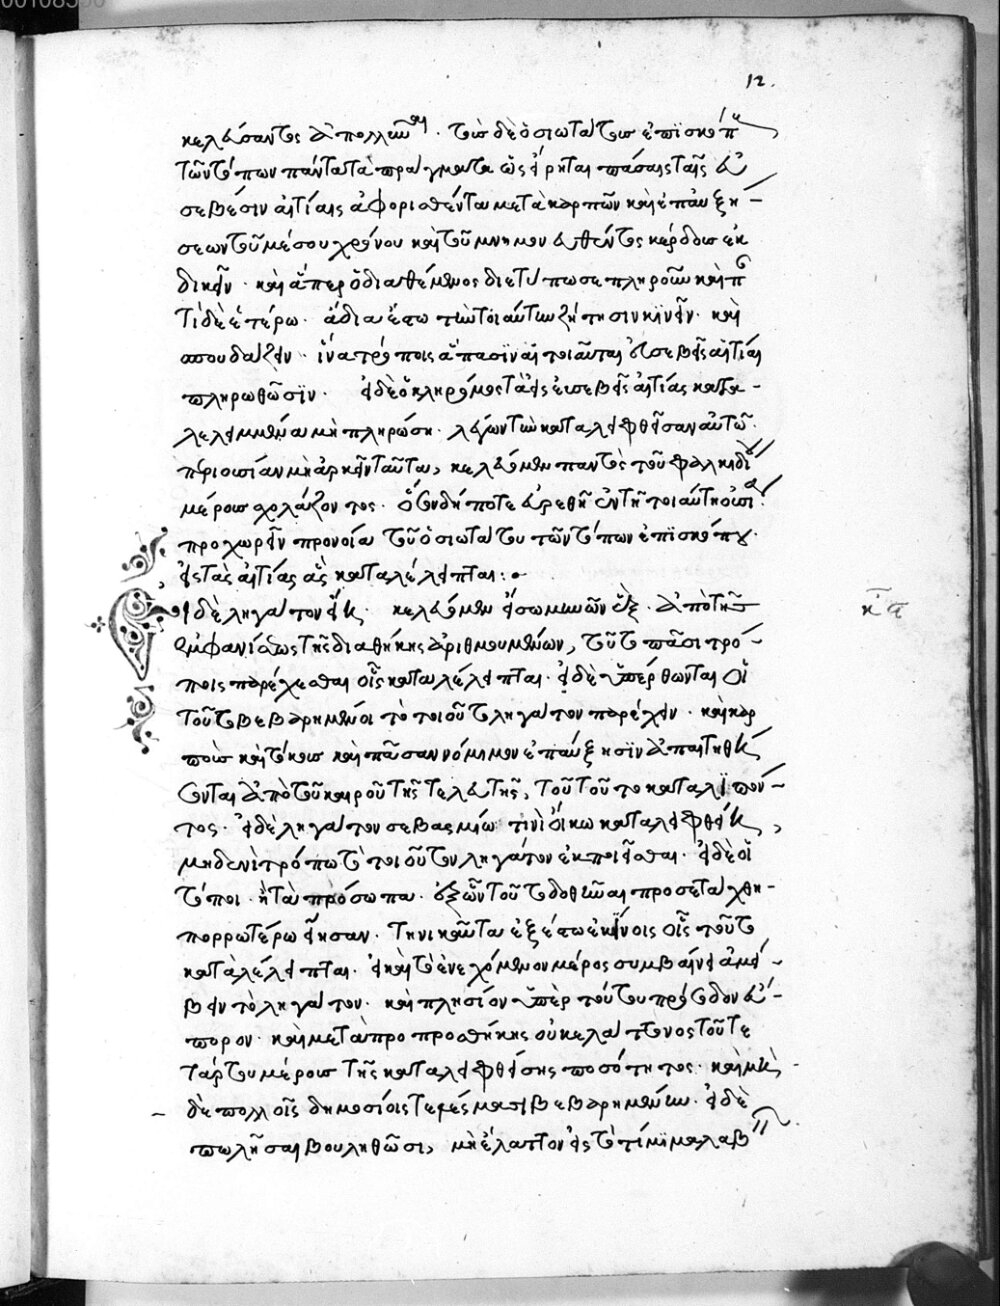 00108530
12.
κελεύσαντος ἀπολλύσθαι. τῶ δὲ ὁσιωτάτω ἐπισκόπω
τῶν τόπων πάντα τὰ πράγματα ὡς εἴρηται πάσαις ταῖς εὐ
σεβέσιν αἰτίαις ἀφορισθέντα μετὰ καρπῶν καὶ ἐπαυξή-
σεων τοῦ μέσου χρόνου καὶ τοῦ μνημονευθέντος κέρδους ἐκ
δικεῖν. καὶ ἅπερ ὁ διαθέμενος διετύπωσε πληροῦν καὶ
ἄδειαν ἔστω τὴν τοιαύτην ζήτησιν κινεῖν. καὶ
σπουδάζειν. ἵνα τρόποις ἅπασιν αἱ τοιαῦται εὐσεβεῖς αἰτίαι
πληρωθῶσιν. εἰ δὲ ὁ κληρονόμος τὰ εἰς εὐσεβεῖς αἰτίας κατα-
λελειμμένα μὴ πληρώση. λέγων τὴν καταλειφθεῖσαν αὐτῶ
περιουσίαν μὴ ἀρκεῖν ταῦτα, κελεύομεν παντὸς τοῦ φαλκιδίου
μέρους σχολάζοντος. ὅσον δήποτε εὑρεθῆ ἐν τῆ τοιαύτη οὐσία.
προχωρεῖν προνοία τοῦ ὁσιωτάτου τῶν τόπων ἐπισκόπου.
εἰς τὰς αἰτίας αἷς καταλέλειπται:
εἰ δὲ ληγάτον κελεύομεν εἴσω μηνῶν ἓξ. ἀπὸ τῆς
ἐμφανίσεως τῆς διαθήκης ἀριθμουμένων, τοῦτο πᾶσι τρό-
ποις παρέχεσθαι οἷς καταλέλειπται. εἰ δὲ ὑπέρθωνται οἱ
τοῦτο βεβαρημένοι τὸ τοιοῦτο ληγάτον παρέχειν. καὶ καρ
ποὺς καὶ τόκους καὶ πᾶσαν νόμιμον ἐπαύξησιν ἀπαιτηθή
σονται ἀπὸ τοῦ καιροῦ τῆς τελευτῆς, τοῦ τοῦτο καταλιπόν-
τος. εἰ δὲ ληγάτον σεβασμίω τινὶ οἴκω καταλειφθείη,
μηδενὶ τρόπω τὸ τοιοῦτον ληγάτον ἐκποιεῖσθαι. εἰ δὲ οἱ
τόποι. ἢ τὰ πρόσωπα. ἐξ ὧν τοῦτο δοθῆναι προσετάχθη-
πορρωτέρω εἴησαν. τηνικαῦτα ἐξέστω ἐκείνοις οἷς τοῦτο
καταλέλειπται. εἰ καὶ τὸ ἐνεχόμενον μέρος συμβαίνει ἀμεί-
βειν τὸ ληγάτον. καὶ πλησίον ὑπὲρ τούτου πρόσοδον εὔ-
πορον. καὶ μετὰ προσθήκης οὐκ ἐλάττονος τοῦ τε
τάρτου μέρους τῆς καταλειφθείσης ποσότητος. καὶ μὴ
δὲ πολλοῖς δημοσίοις τελέσμασι βεβαρημένην. εἰ δὲ
πωλῆσαι βουληθῶσι, μὴ ἔλαττον εἰς τὸ τίμημα λαβ